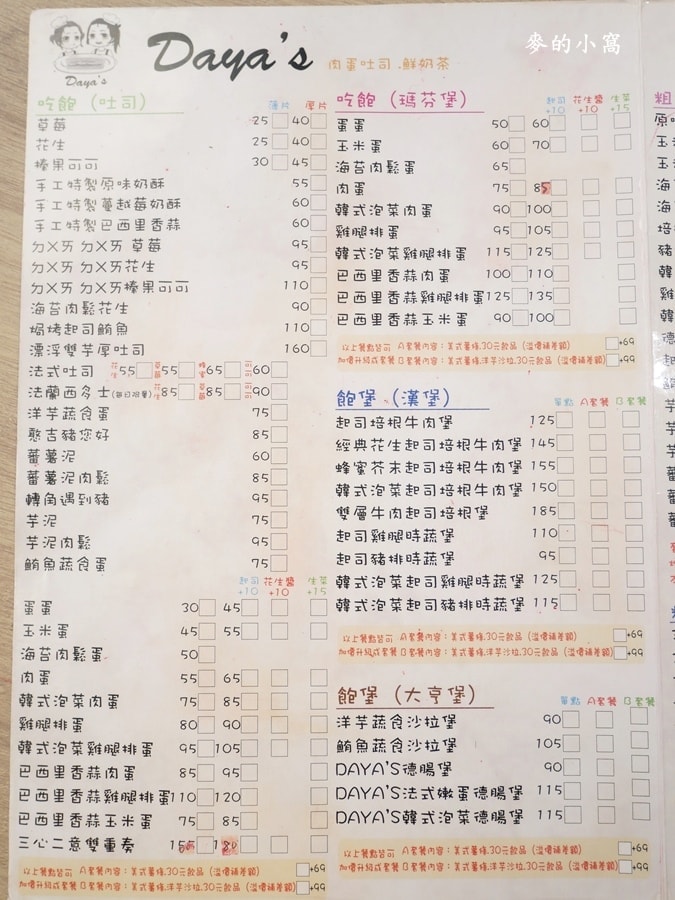 麥的小窩
Daya's
Daya's
肉蛋吐司.鮮奶茶
吃飽（吐司） 薄片 厚片
草莓 25 40
花生 25 40
榛果可可 30 45
手工特製原味奶酥 55
手工特製蔓越莓奶酥 60
手工特製巴西里香蒜 60
ㄉㄨㄞ ㄉㄨㄞ 草莓 95
ㄉㄨㄞ ㄉㄨㄞ花生 95
ㄉㄨㄞ ㄉㄨㄞ榛果可可 110
海苔肉鬆花生 90
焗烤起司鮪魚 110
漂浮雙芋厚吐司 160
法式吐司 花生55 草莓55 蜂蜜65 60
法蘭西多士(每日限量) 花生85 草莓85 90
洋芋蔬食蛋 75
憨吉豬您好 85
蕃薯泥 60
蕃薯泥肉鬆 85
轉角遇到豬 95
芋泥 75
芋泥肉鬆 95
鮪魚蔬食蛋 75
起司+10 花生醬+10 生菜+15
蛋蛋 30 45
玉米蛋 45 55
海苔肉鬆蛋 50
肉蛋 55 65
韓式泡菜肉蛋 75 85
雞腿排蛋 80 90
韓式泡菜雞腿排蛋 95 105
巴西里香蒜肉蛋 85 95
巴西里香蒜雞腿排蛋 110 120
巴西里香蒜玉米蛋 75 85
三心二意雙重奏 180
以上餐點皆可 A套餐內容：美式薯條.30元飲品（溢價補差額） +69
加價升級成套餐 B套餐內容：美式薯條.洋芋沙拉.30元飲品（溢價補差額） +99
吃飽（瑪芬堡） 起司+10 花生醬+10 生菜+15
蛋蛋 50 60
玉米蛋 60 70
海苔肉鬆蛋 65
肉蛋 75 85
韓式泡菜肉蛋 90 100
雞腿排蛋 95 105
韓式泡菜雞腿排蛋 115 125
巴西里香蒜肉蛋 100 110
巴西里香蒜雞腿排蛋 125 135
巴西里香蒜玉米蛋 90 100
以上餐點皆可 A套餐內容：美式薯條.30元飲品（溢價補差額） +69
加價升級成套餐 B套餐內容：美式薯條.洋芋沙拉.30元飲品（溢價補差額） +99
飽堡（漢堡） 單點 A套餐 B套餐
起司培根牛肉堡 125
經典花生起司培根牛肉堡 145
蜂蜜芥末起司培根牛肉堡 155
韓式泡菜起司培根牛肉堡 150
雙層牛肉起司培根堡 185
起司雞腿時蔬堡 110
起司豬排時蔬堡 95
韓式泡菜起司雞腿時蔬堡 125
韓式泡菜起司豬排時蔬堡 115
以上餐點皆可 A套餐內容：美式薯條.30元飲品（溢價補差額） +69
加價升級成套餐 B套餐內容：美式薯條.洋芋沙拉.30元飲品（溢價補差額） +99
飽堡（大亨堡） 單點 A套餐 B套餐
洋芋蔬食沙拉堡 90
鮪魚蔬食沙拉堡 105
DAYA'S德腸堡 90
DAYA'S法式嫩蛋德腸堡 115
DAYA'S韓式泡菜德腸堡 115
以上餐點皆可 A套餐內容：美式薯條.30元飲品（溢價補差額） +69
加價升級成套餐 B套餐內容：美式薯條.洋芋沙拉.30元飲品（溢價補差額） +99
粗
原
玉
玉
海
海
培
豬
韓
韓